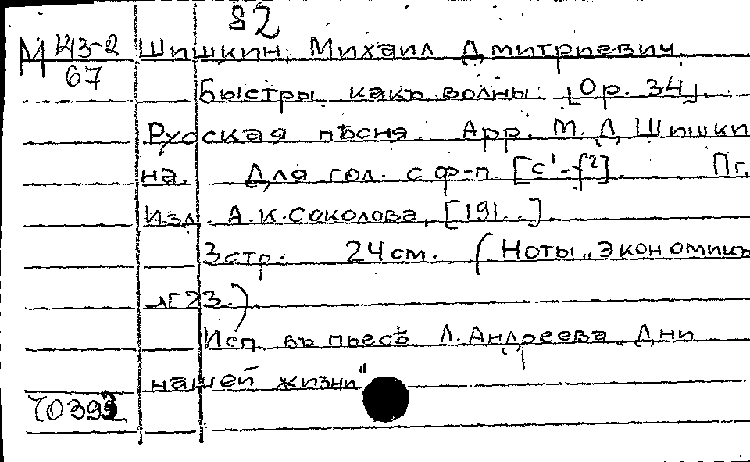 82
М Ц3-2 Шишкин, Михаил Дмитриевич.
67
Быстры, какъ волны. [Op. 34].
Русская пѣсня. Арр. М. Д. Шишки
на. Для гол. с ф-п. [c¹-f²]. Пг.
Изд. А. К. Соколова, [191..].
3 стр. 24 см. (Ноты „Экономикъ
№ 23.)
Исп. въ пьесѣ Л. Андреева „Дни
нашей жизни"